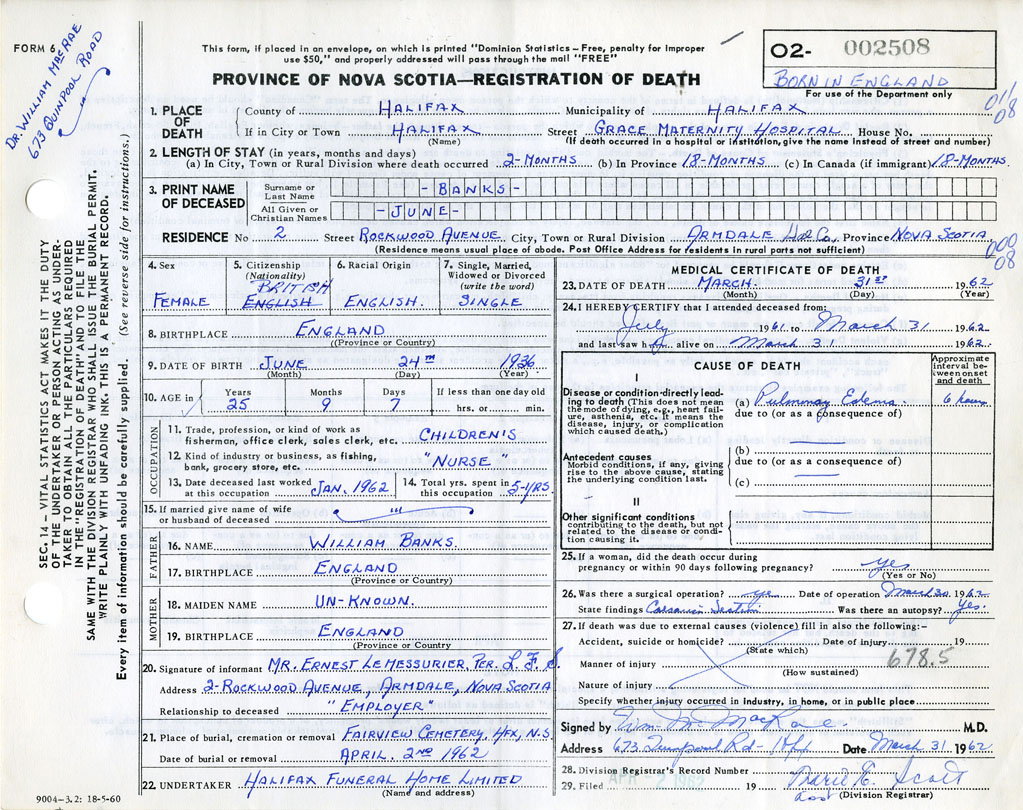 FORM 6
DR. WILLIAM MACRAE
673 QUINPOOL ROAD
This form, if placed in an envelope, on which is printed "Dominion Statistics – Free, penalty for improper
use $50," and properly addressed will pass through the mail "FREE"
PROVINCE OF NOVA SCOTIA—REGISTRATION OF DEATH
O2- 002508
BORN IN ENGLAND
For use of the Department only
011
08
1. PLACE OF DEATH
County of HALIFAX Municipality of HALIFAX
If in City or Town HALIFAX Street GRACE MATERNITY HOSPITAL House No.
(Name) (If death occurred in a hospital or institution, give the name instead of street and number)
2. LENGTH OF STAY (in years, months and days)
(a) In City, Town or Rural Division where death occurred 2-MONTHS (b) In Province 18-MONTHS (c) In Canada (if immigrant) 18-MONTHS
3. PRINT NAME OF DECEASED
Surname or Last Name -BANKS-
All Given or Christian Names -JUNE-
RESIDENCE No 2 Street ROCKWOOD AVENUE City, Town or Rural Division ARMDALE Hfx Co, Province NOVA SCOTIA
(Residence means usual place of abode. Post Office Address for residents in rural parts not sufficient)
000
08
4. Sex
FEMALE
5. Citizenship
(Nationality)
BRITISH
ENGLISH
6. Racial Origin
ENGLISH.
7. Single, Married,
Widowed or Divorced
(write the word)
SINGLE
8. BIRTHPLACE ENGLAND
(Province or Country)
9. DATE OF BIRTH JUNE 24TH 1936
(Month) (Day) (Year)
10. AGE in
Years Months Days If less than one day old
25 9 7 hrs. or min.
OCCUPATION
11. Trade, profession, or kind of work as
fisherman, office clerk, sales clerk, etc. CHILDREN'S
12. Kind of industry or business, as fishing,
bank, grocery store, etc. "NURSE"
13. Date deceased last worked
at this occupation JAN. 1962
14. Total yrs. spent in
this occupation 5-YRS
15. If married give name of wife
or husband of deceased "'
FATHER
16. NAME WILLIAM BANKS.
17. BIRTHPLACE ENGLAND
(Province or Country)
MOTHER
18. MAIDEN NAME UN-KNOWN.
19. BIRTHPLACE ENGLAND
(Province or Country)
20. Signature of informant MR. ERNEST LEMESSURIER. PER. L.F.S.
Address 2-ROCKWOOD AVENUE, ARMDALE, NOVA SCOTIA
Relationship to deceased "EMPLOYER"
21. Place of burial, cremation or removal FAIRVIEW CEMETERY, HFX, N.S.
Date of burial or removal APRIL. 2ND 1962
22. UNDERTAKER HALIFAX FUNERAL HOME LIMITED
(Name and address)
9004-3.2: 18-5-60
MEDICAL CERTIFICATE OF DEATH
23. DATE OF DEATH MARCH. 31ST 1962
(Month) (Day) (Year)
24. I HEREBY CERTIFY that I attended deceased from:
July 1961. to March 31 1962
and last saw h alive on March 31. 1962.
CAUSE OF DEATH
Approximate
interval between onset
and death
I
Disease or condition directly leading to death (This does not mean
the mode of dying, e.g., heart failure, asthenia, etc. It means the
disease, injury, or complication
which caused death.)
(a) Pulmonary Edema 6 hours
due to (or as a consequence of)
Antecedent causes
Morbid conditions, if any, giving
rise to the above cause, stating
the underlying condition last.
(b)
due to (or as a consequence of)
(c)
II
Other significant conditions
contributing to the death, but not
related to the disease or condition causing it.
25. If a woman, did the death occur during
pregnancy or within 90 days following pregnancy? yes
(Yes or No)
26. Was there a surgical operation? yes Date of operation March 30 1962
State findings Cesarean Section Was there an autopsy? Yes.
27. If death was due to external causes (violence) fill in also the following:–
Accident, suicide or homicide? Date of injury 19
(State which)
678.5
Manner of injury
(How sustained)
Nature of injury
Specify whether injury occurred in industry, in home, or in public place
Signed by Wm. M. MacRae M.D.
Address 673 Quinpool Rd- Hfx Date March 31 1962
28. Division Registrar's Record Number
29. Filed APR - 2 1962 19 Marie E. Scott
Asst (Division Registrar)
SEC. 14 — VITAL STATISTICS ACT MAKES IT THE DUTY
OF THE UNDERTAKER OR PERSON ACTING AS UNDERTAKER TO OBTAIN ALL THE PARTICULARS REQUIRED
IN THE "REGISTRATION OF DEATH" AND TO FILE THE
SAME WITH THE DIVISION REGISTRAR WHO SHALL ISSUE THE BURIAL PERMIT.
WRITE PLAINLY WITH UNFADING INK. THIS IS A PERMANENT RECORD.
Every item of information should be carefully supplied. (See reverse side for instructions.